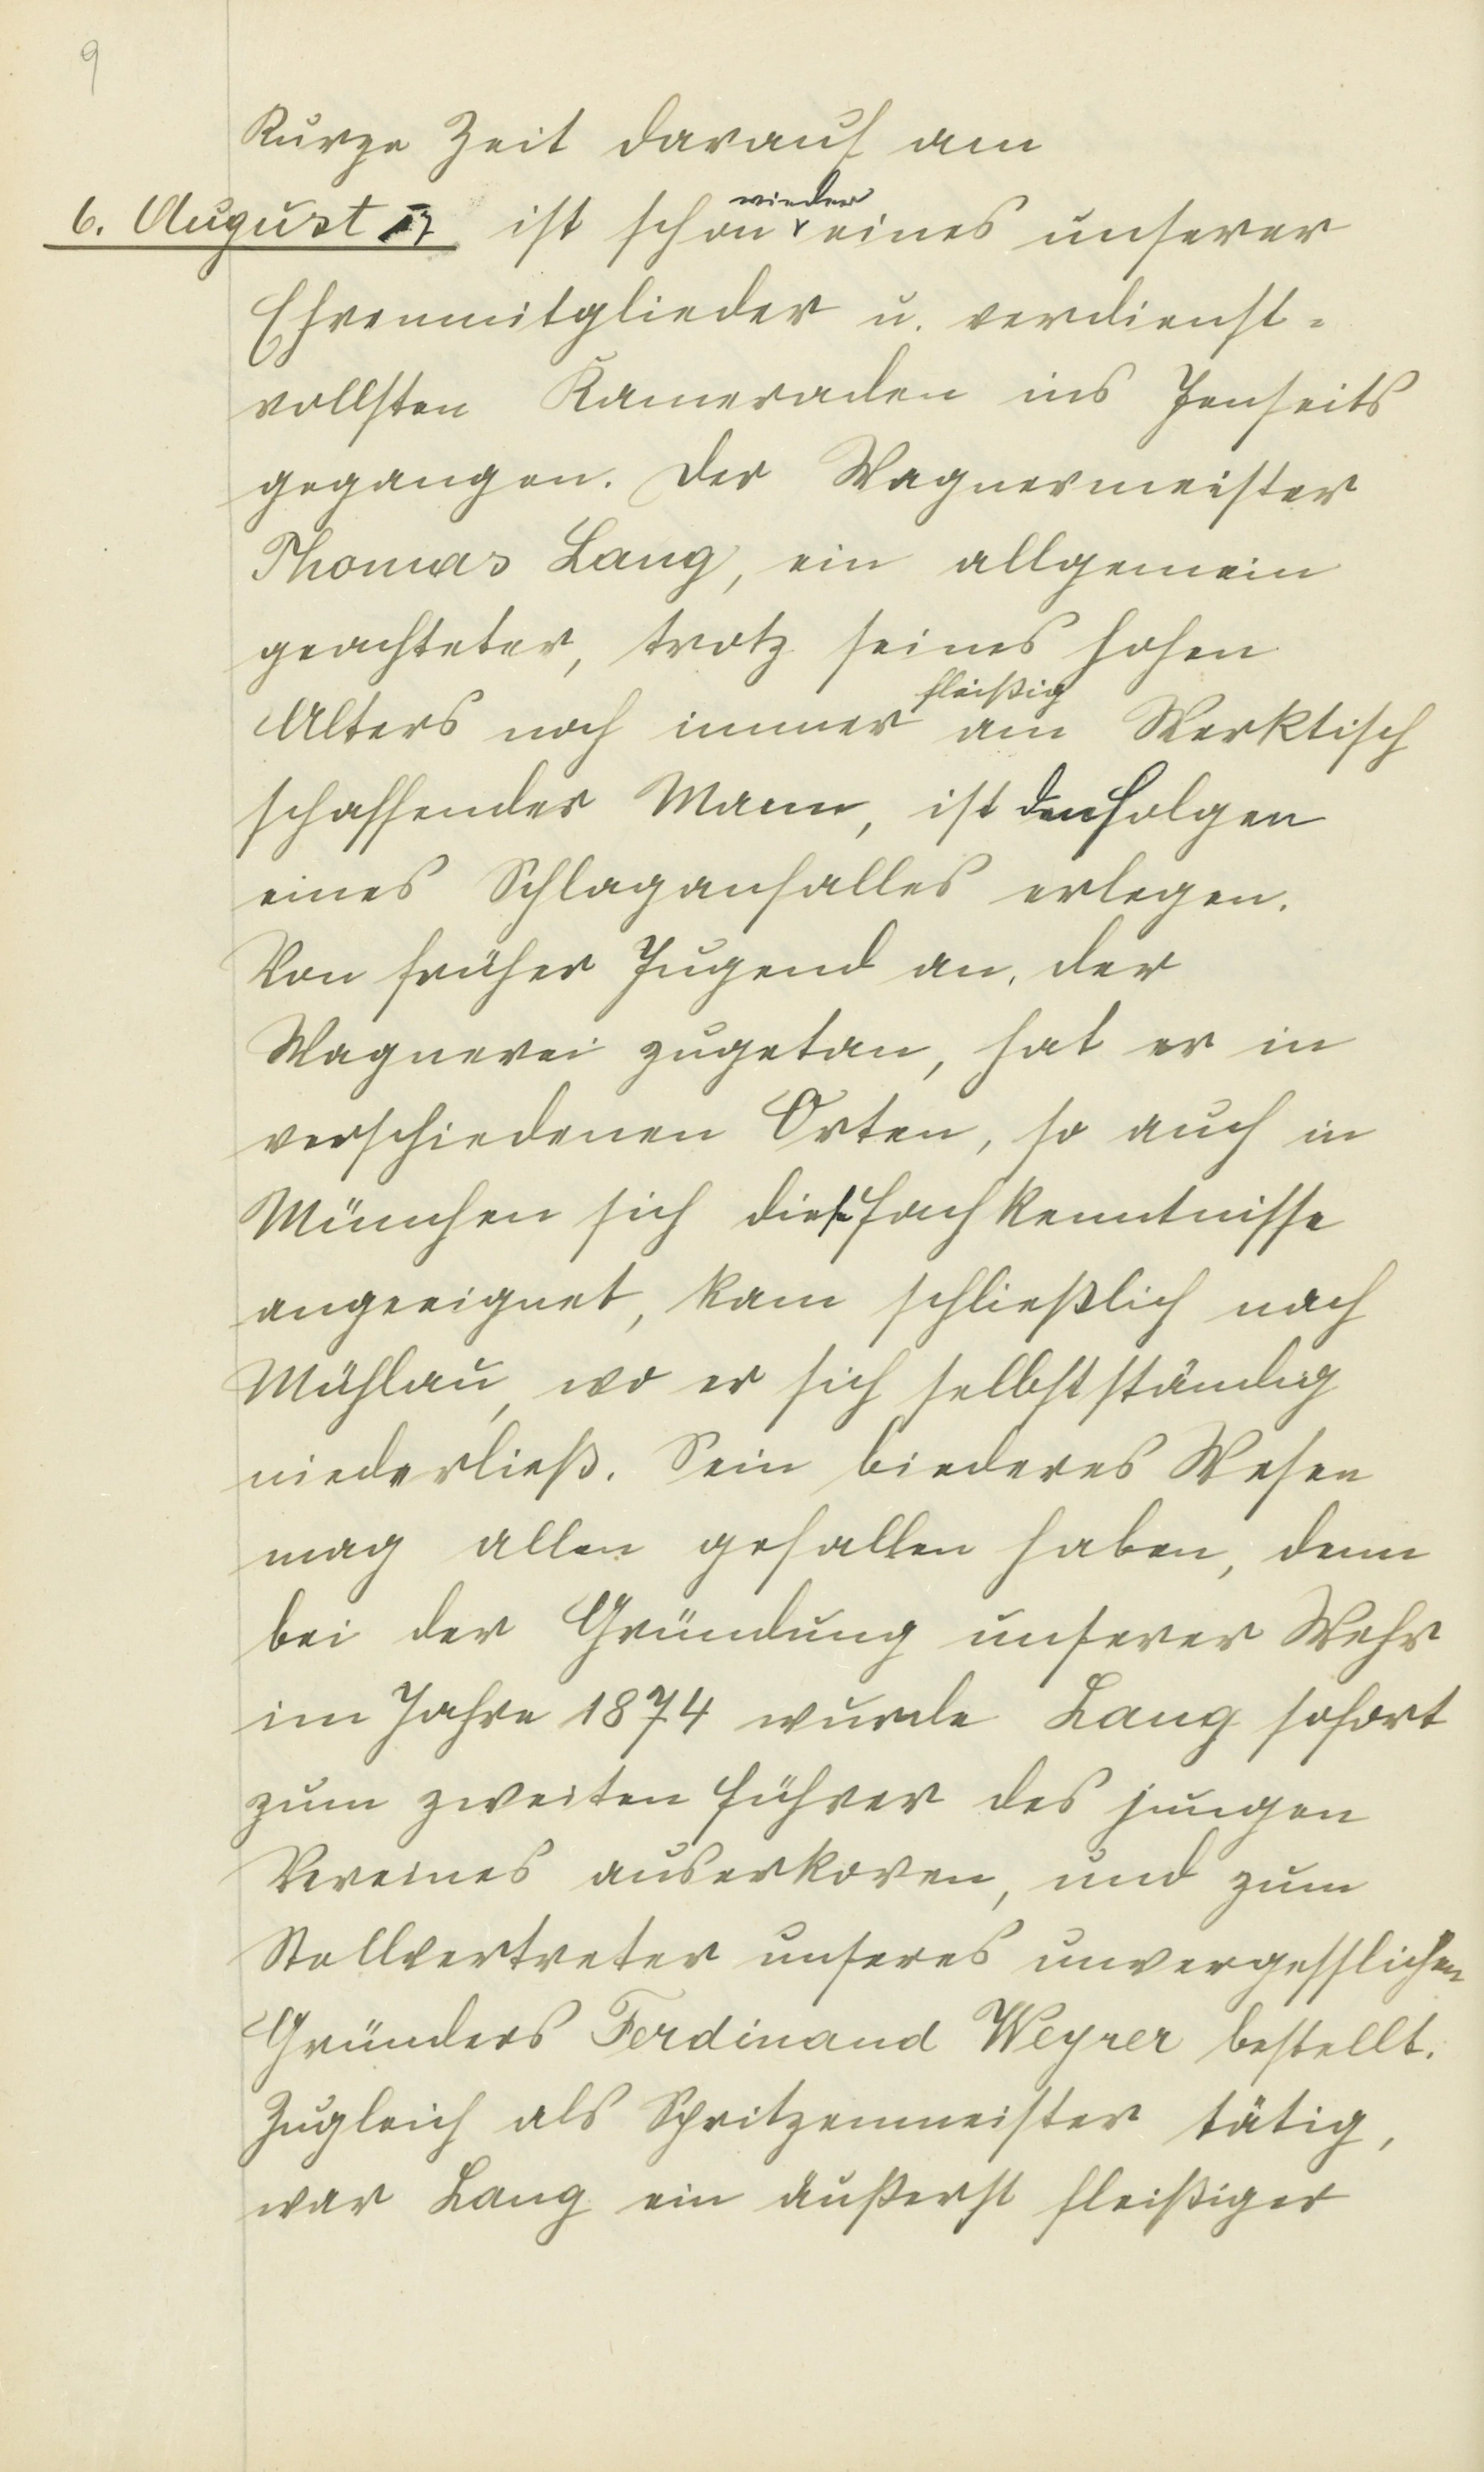 9
Kurze Zeit darauf am
6. August 17 ist schon wieder eines unserer
Ehrenmitglieder u. verdienst=
vollsten Kameraden ins Jenseits
gegangen. Der Wagnermeister
Thomas Lang, ein allgemein
geachteter, trotz seines hohen
Alters noch immer fleißig am Werktisch
schaffender Mann, ist den Folgen
eines Schlaganfalles erlegen.
Von früher Jugend an, der
Wagnerei zugetan, hat er in
verschiedenen Orten, so auch in
München sich diese Fachkenntnisse
angeeignet, kam schließlich nach
Mühlau, wo er sich selbstständig
niederließ. Sein biederes Wesen
mag allen gefallen haben, denn
bei der Gründung unserer Wehr
im Jahre 1874 wurde Lang sofort
zum zweiten Führer des jungen
Vereines auserkoren, und zum
Stellvertreter unseres unvergesslichen
Gründers Ferdinand Weyrer bestellt.
Zugleich als Spritzenmeister tätig,
war Lang ein äußerst fleißiger